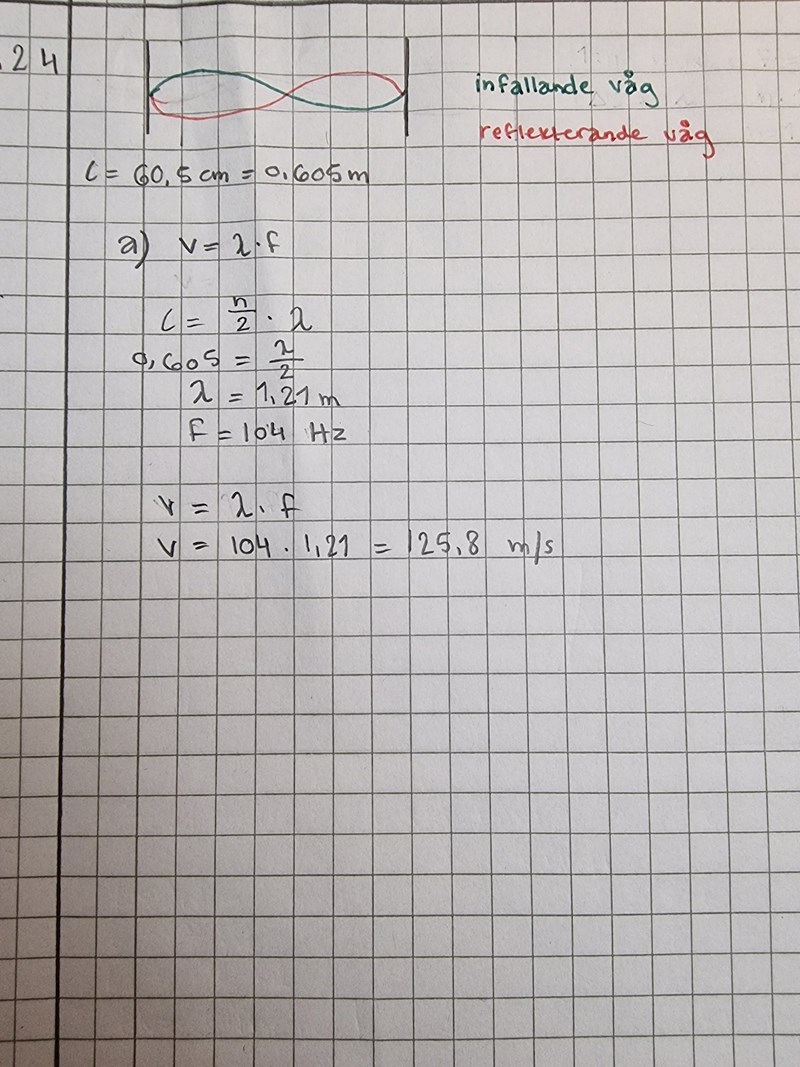 .24
infallande våg
reflekterande våg
l = 60,5 cm = 0,605 m
a) v = λ · f
l = n/2 · λ
0,605 = λ/2
λ = 1,21 m
f = 104 Hz
v = λ · f
v = 104 · 1,21 = 125,8 m/s